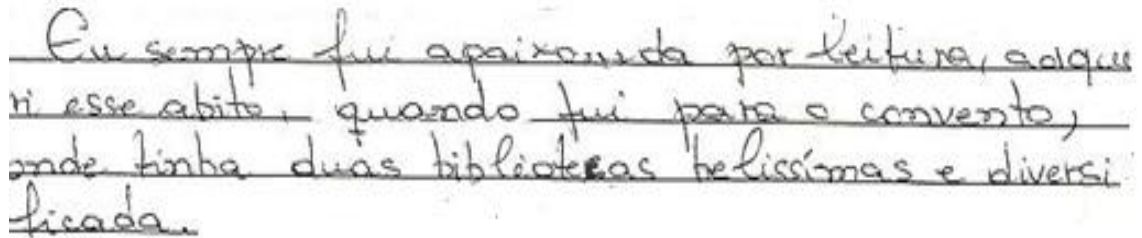 Eu sempre fui apaixonada por leitura, adque
ri esse abito, quando fui para o convento,
onde tinha duas bibliotecas belissímas e diversi
ficada.